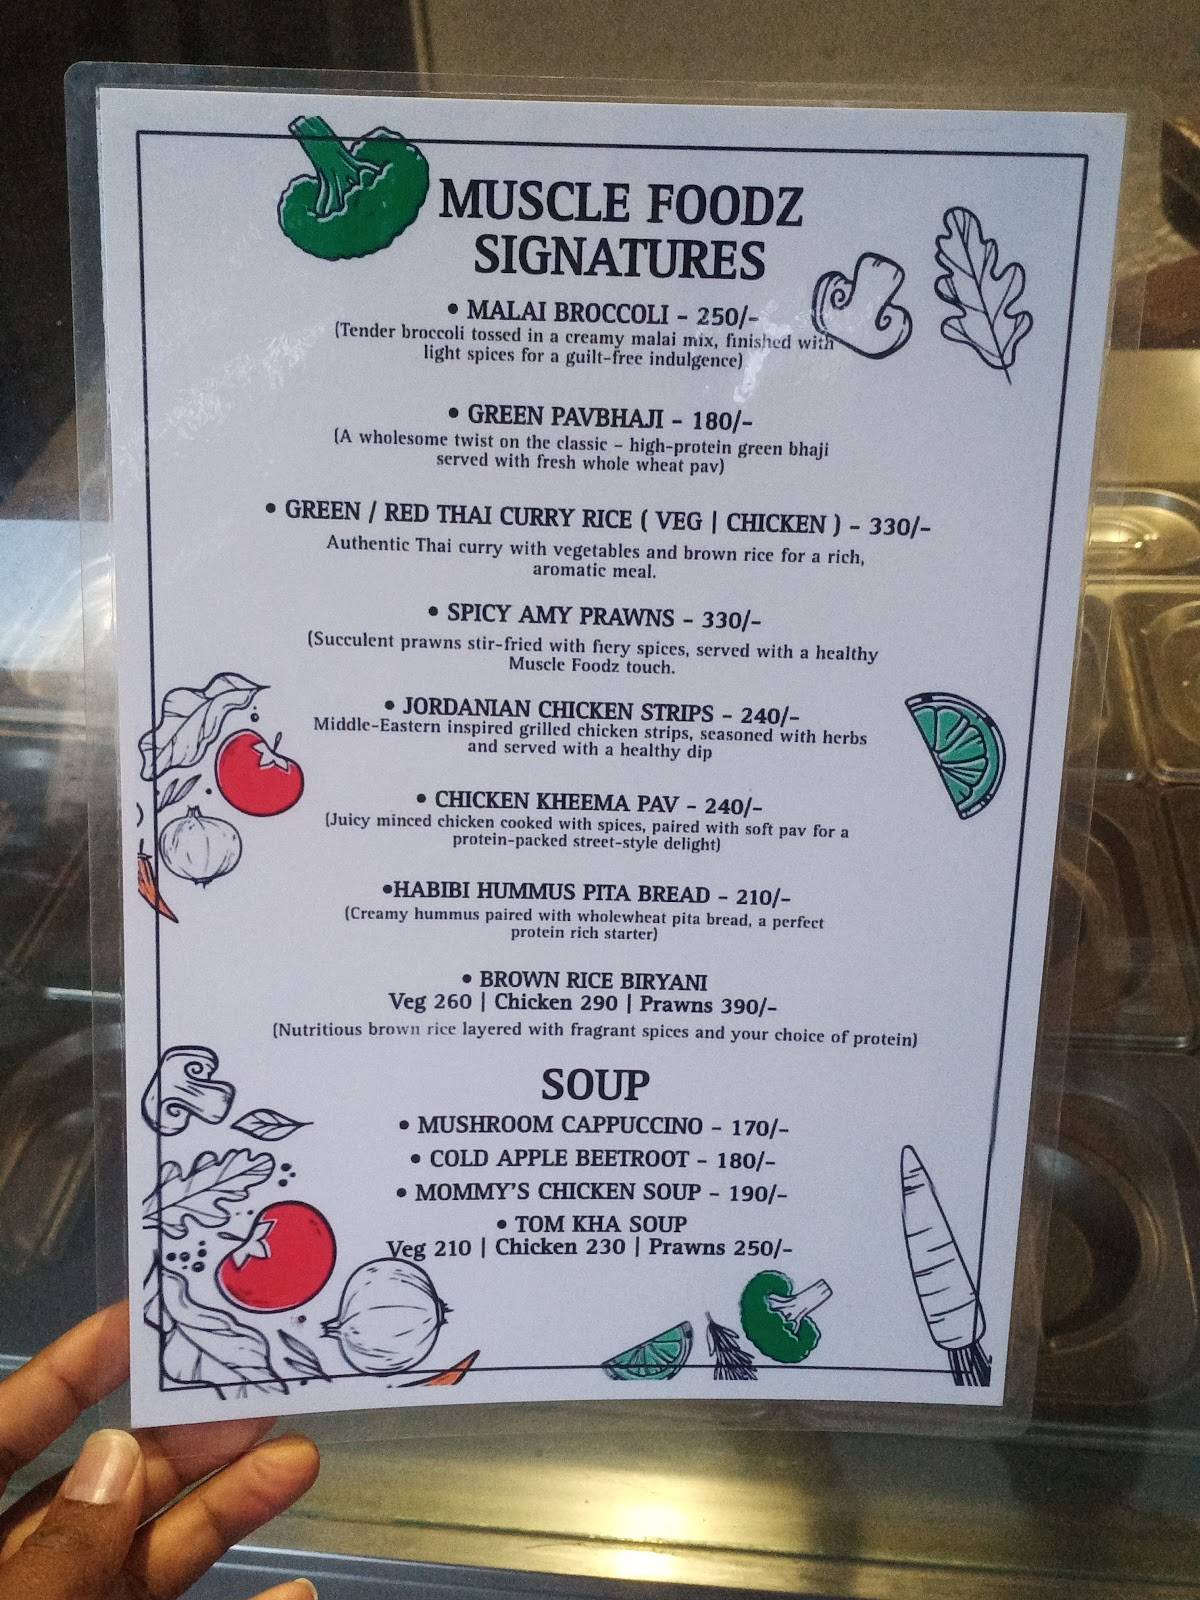 MUSCLE FOODZ
SIGNATURES
• MALAI BROCCOLI - 250/-
(Tender broccoli tossed in a creamy malai mix, finished with
light spices for a guilt-free indulgence)
• GREEN PAVBHAJI - 180/-
(A wholesome twist on the classic - high-protein green bhaji
served with fresh whole wheat pav)
• GREEN / RED THAI CURRY RICE ( VEG | CHICKEN ) - 330/-
Authentic Thai curry with vegetables and brown rice for a rich,
aromatic meal.
• SPICY AMY PRAWNS - 330/-
(Succulent prawns stir-fried with fiery spices, served with a healthy
Muscle Foodz touch.
• JORDANIAN CHICKEN STRIPS - 240/-
Middle-Eastern inspired grilled chicken strips, seasoned with herbs
and served with a healthy dip
• CHICKEN KHEEMA PAV - 240/-
(Juicy minced chicken cooked with spices, paired with soft pav for a
protein-packed street-style delight)
•HABIBI HUMMUS PITA BREAD - 210/-
(Creamy hummus paired with wholewheat pita bread, a perfect
protein rich starter)
• BROWN RICE BIRYANI
Veg 260 | Chicken 290 | Prawns 390/-
(Nutritious brown rice layered with fragrant spices and your choice of protein)
SOUP
• MUSHROOM CAPPUCCINO - 170/-
• COLD APPLE BEETROOT - 180/-
• MOMMY'S CHICKEN SOUP - 190/-
• TOM KHA SOUP
Veg 210 | Chicken 230 | Prawns 250/-